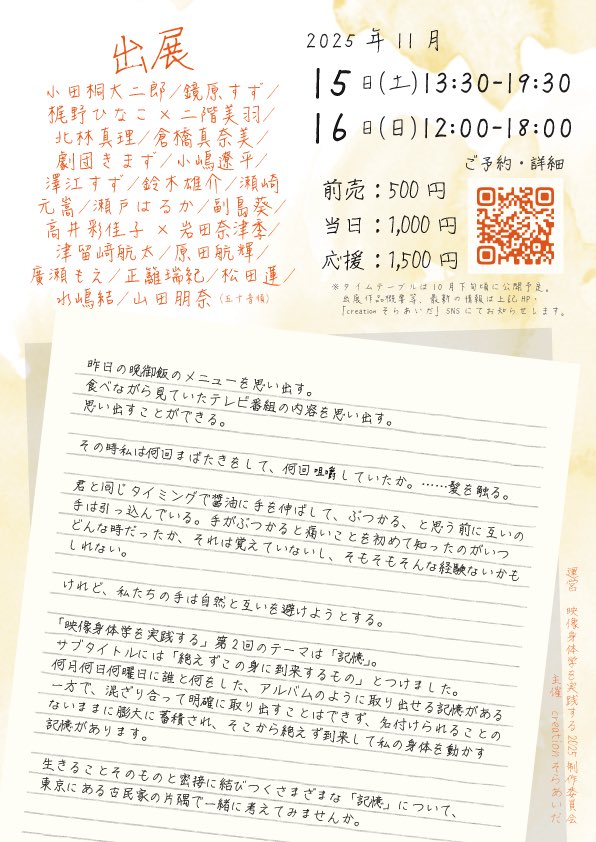 出展
小田桐大二郎/鏡原すず/
梶野ひなこ × 二階美羽/
北林真理/倉橋真奈美/
劇団きまず/小嶋遼平/
澤江すず/鈴木雄介/瀬崎
元嵩/瀬戸はるか/副島葵/
高井彩佳子 × 岩田奈津季/
津留﨑航太/原田航輝/
廣瀬もえ/正籬瑞紀/松田蓮/
水嶋結/山田朋奈(五十音順)
2025 年 11 月
15 日(土)13:30-19:30
16 日(日)12:00-18:00
ご予約・詳細
前売:500 円
当日:1,000 円
応援:1,500 円
※タイムテーブルは10月下旬頃に公開予定。
出展作品概要等、最新の情報は上記HP・
「creationそらあいだ」SNSにてお知らせします。
昨日の晩御飯のメニューを思い出す。
食べながら見ていたテレビ番組の内容を思い出す。
思い出すことができる。
その時私は何回まばたきをして、何回咀嚼していたか。……髪を触る。
君と同じタイミングで醤油に手を伸ばして、ぶつかる、と思う前に互いの
手は引っ込んでいる。手がぶつかると痛いことを初めて知ったのがいつ
どんな時だったか、それは覚えていないし、そもそもそんな経験ないかも
しれない。
けれど、私たちの手は自然と互いを避けようとする。
「映像身体学を実践する」第2回のテーマは「記憶」。
サブタイトルには「絶えずこの身に到来するもの」とつけました。
何月何日何曜日に誰と何をした、アルバムのように取り出せる記憶がある
一方で、混ざり合って明確に取り出すことはできず、名付けられることの
ないままに膨大に蓄積され、そこから絶えず到来して私の身体を動かす
記憶があります。
生きることそのものと密接に結びつくさまざまな「記憶」について、
東京にある古民家の片隅で一緒に考えてみませんか。
運営 映像身体学を実践する2025制作委員会
主催 creationそらあいだ